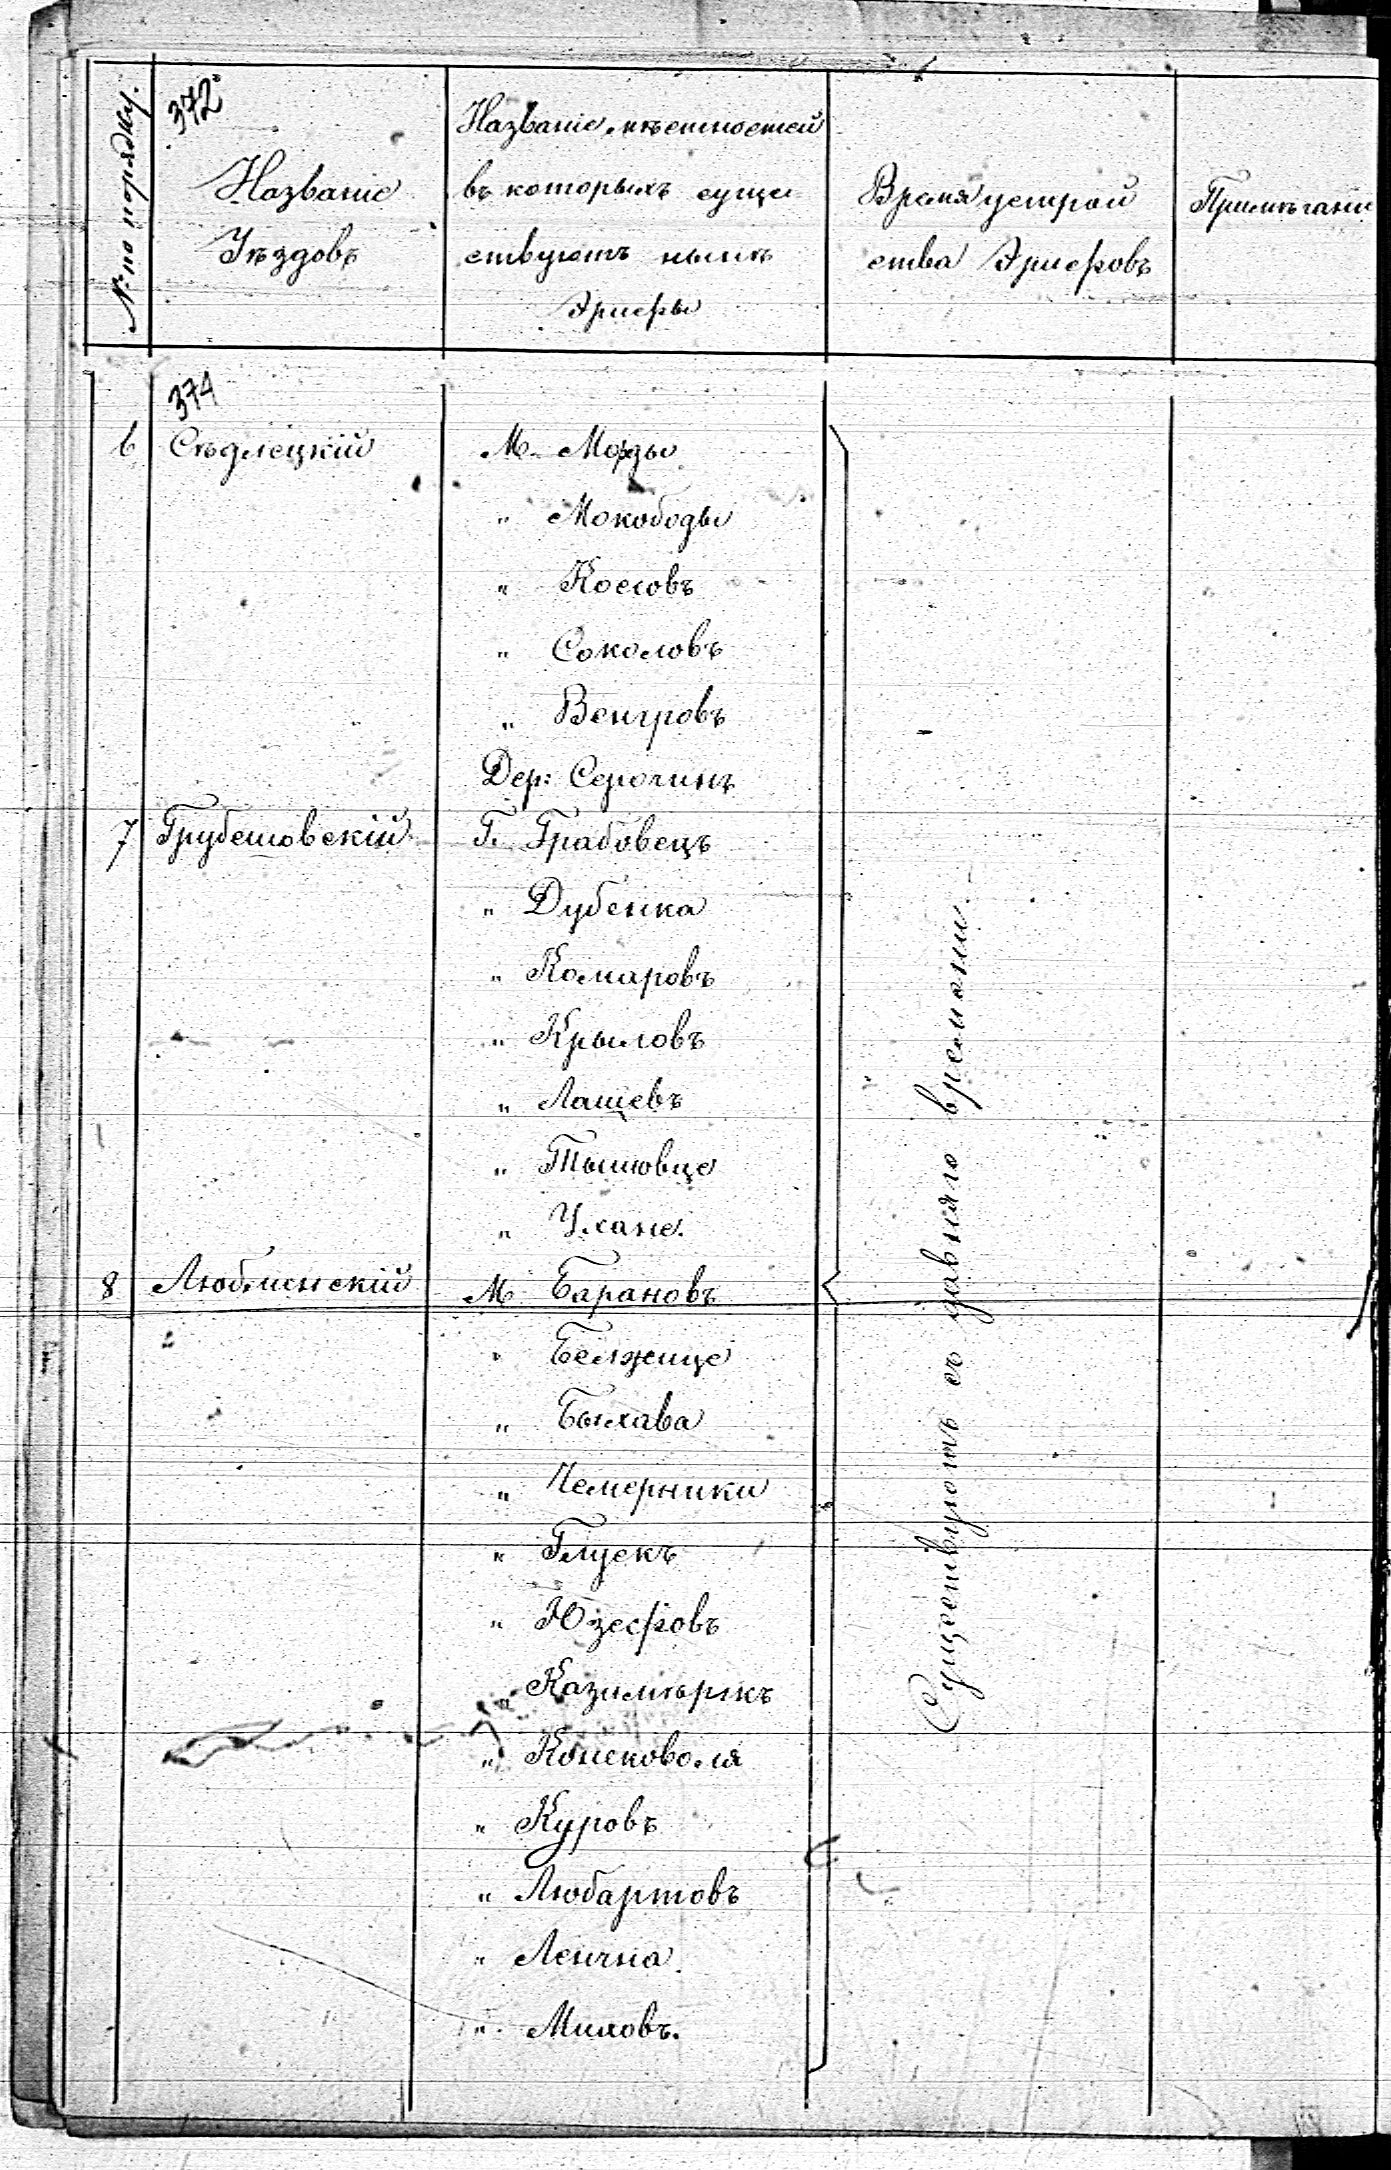 № по порядку.
372
Названіе
Уѣздовъ
Названіе мѣстностей
въ которыхъ суще
ствуютъ нынѣ
Эрисры
Время устрой
ства Эрисровъ
Примѣчаніе
374
6 Сѣдлецкій М.Морды
" Мокободы
" Косовъ
" Соколовъ
" Венгровъ
Дер: Серочинъ
7 Грубешовскій Г. Грабовецъ
" Дубенка
" Комаровъ
" Крыловъ
" Лащевъ
" Тышовце
" Ухане.
8 Люблинскій М Барановъ
" Белжице
" Быхава
" Чемерники
" Глускъ
" Юзефовъ
" Казимѣржъ
" Консковоля
" Куровъ
" Любартовъ
" Ленчна.
" Миховъ.
Существуютъ съ давняго времени.